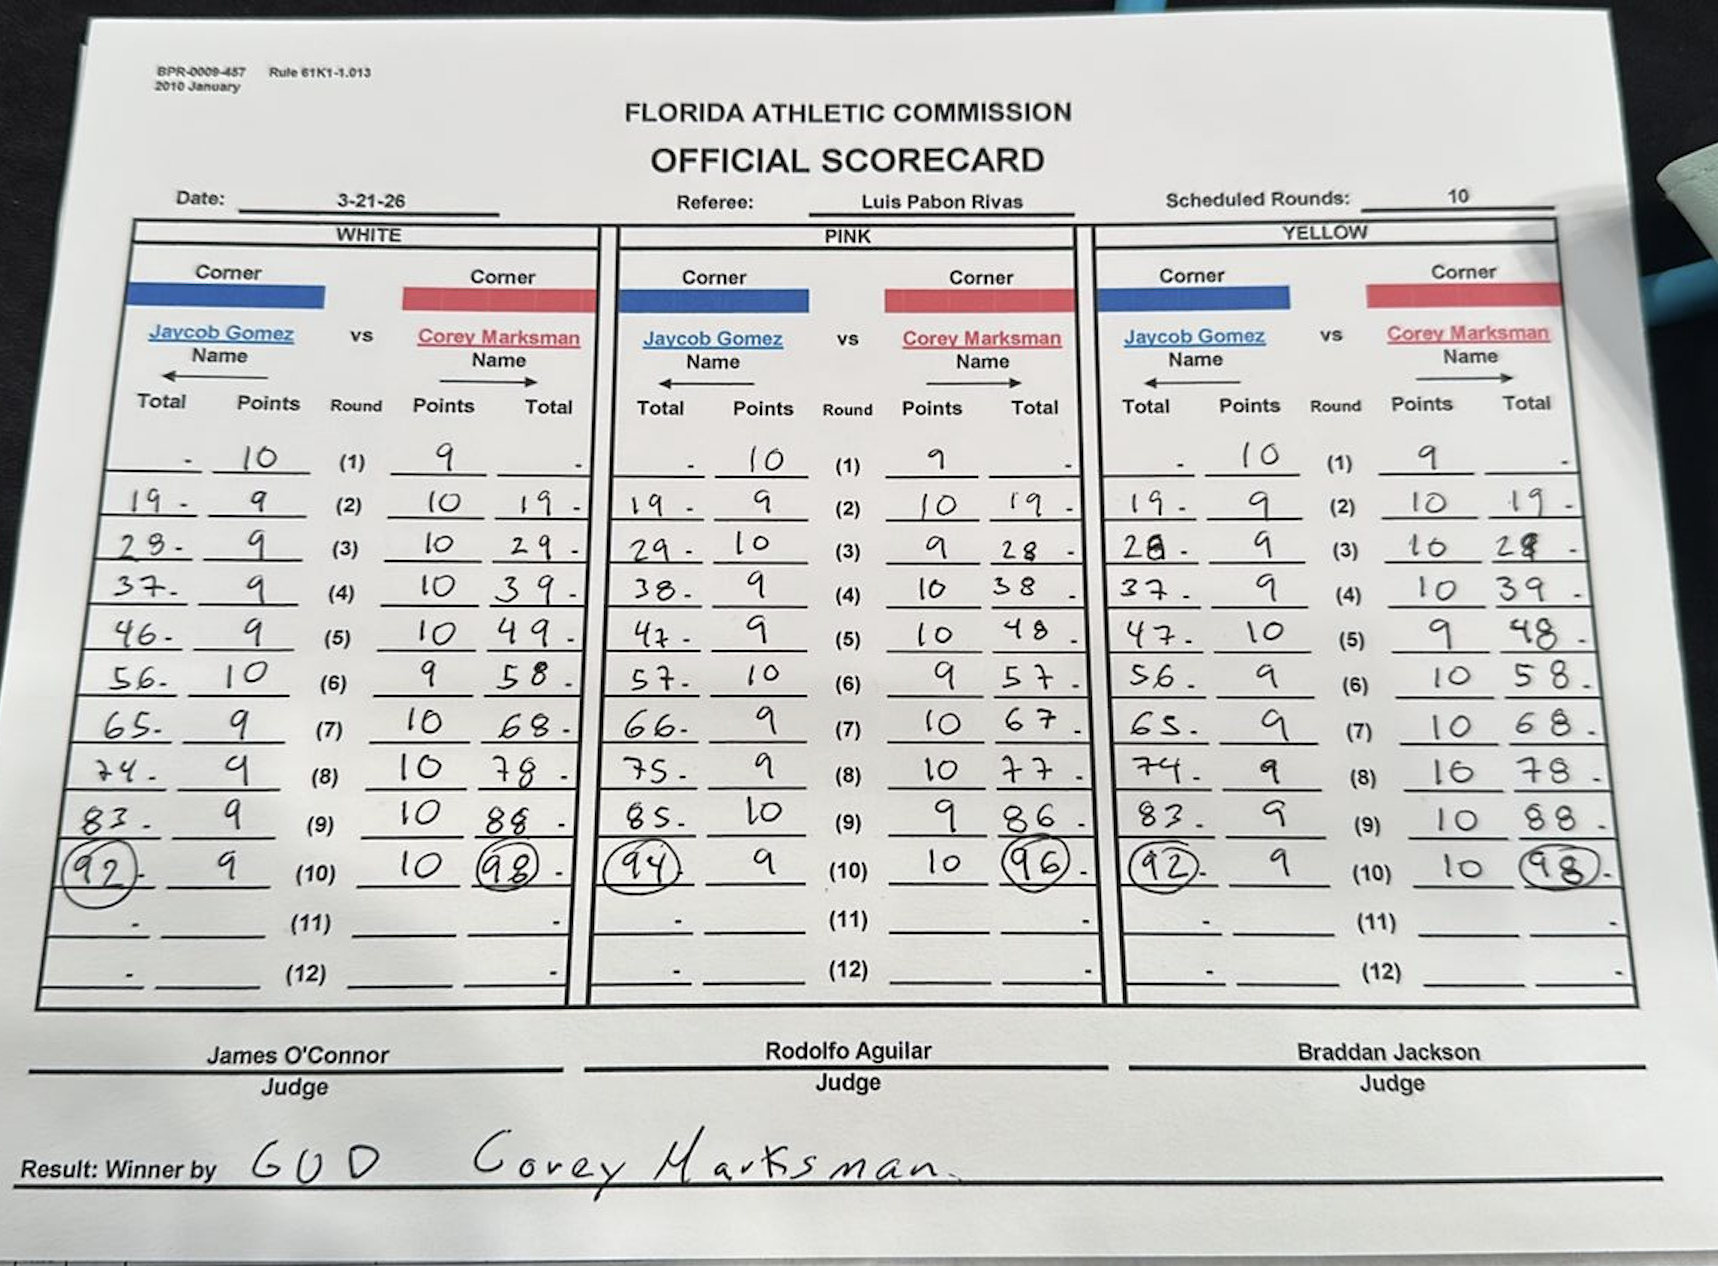 BPR-0009-457 Rule 61K1-1.013
2010 January
FLORIDA ATHLETIC COMMISSION
OFFICIAL SCORECARD
Date: 3-21-26 Referee: Luis Pabon Rivas Scheduled Rounds: 10
WHITE PINK YELLOW
Corner Corner Corner Corner Corner Corner
Jaycob Gomez vs Corey Marksman Jaycob Gomez vs Corey Marksman Jaycob Gomez vs Corey Marksman
Name Name Name Name Name Name
Total Points Round Points Total Total Points Round Points Total Total Points Round Points Total
- 10 (1) 9 - - 10 (1) 9 - - 10 (1) 9 -
19 - 9 (2) 10 19 - 19 - 9 (2) 10 19 - 19 - 9 (2) 10 19 -
28 - 9 (3) 10 29 - 29 - 10 (3) 9 28 - 28 - 9 (3) 10 29 -
37 - 9 (4) 10 39 - 38 - 9 (4) 10 38 - 37 - 9 (4) 10 39 -
46 - 9 (5) 10 49 - 47 - 9 (5) 10 48 - 47 - 10 (5) 9 48 -
56 - 10 (6) 9 58 - 57 - 10 (6) 9 57 - 56 - 9 (6) 10 58 -
65 - 9 (7) 10 68 - 66 - 9 (7) 10 67 - 65 - 9 (7) 10 68 -
74 - 9 (8) 10 78 - 75 - 9 (8) 10 77 - 74 - 9 (8) 10 78 -
83 - 9 (9) 10 88 - 85 - 10 (9) 9 86 - 83 - 9 (9) 10 88 -
92 - 9 (10) 10 98 - 94 - 9 (10) 10 96 - 92 - 9 (10) 10 98 -
- (11) - - (11) - - (11) -
- (12) - - (12) - - (12) -
James O'Connor Rodolfo Aguilar Braddan Jackson
Judge Judge Judge
Result: Winner by GUD Corey Marksman.